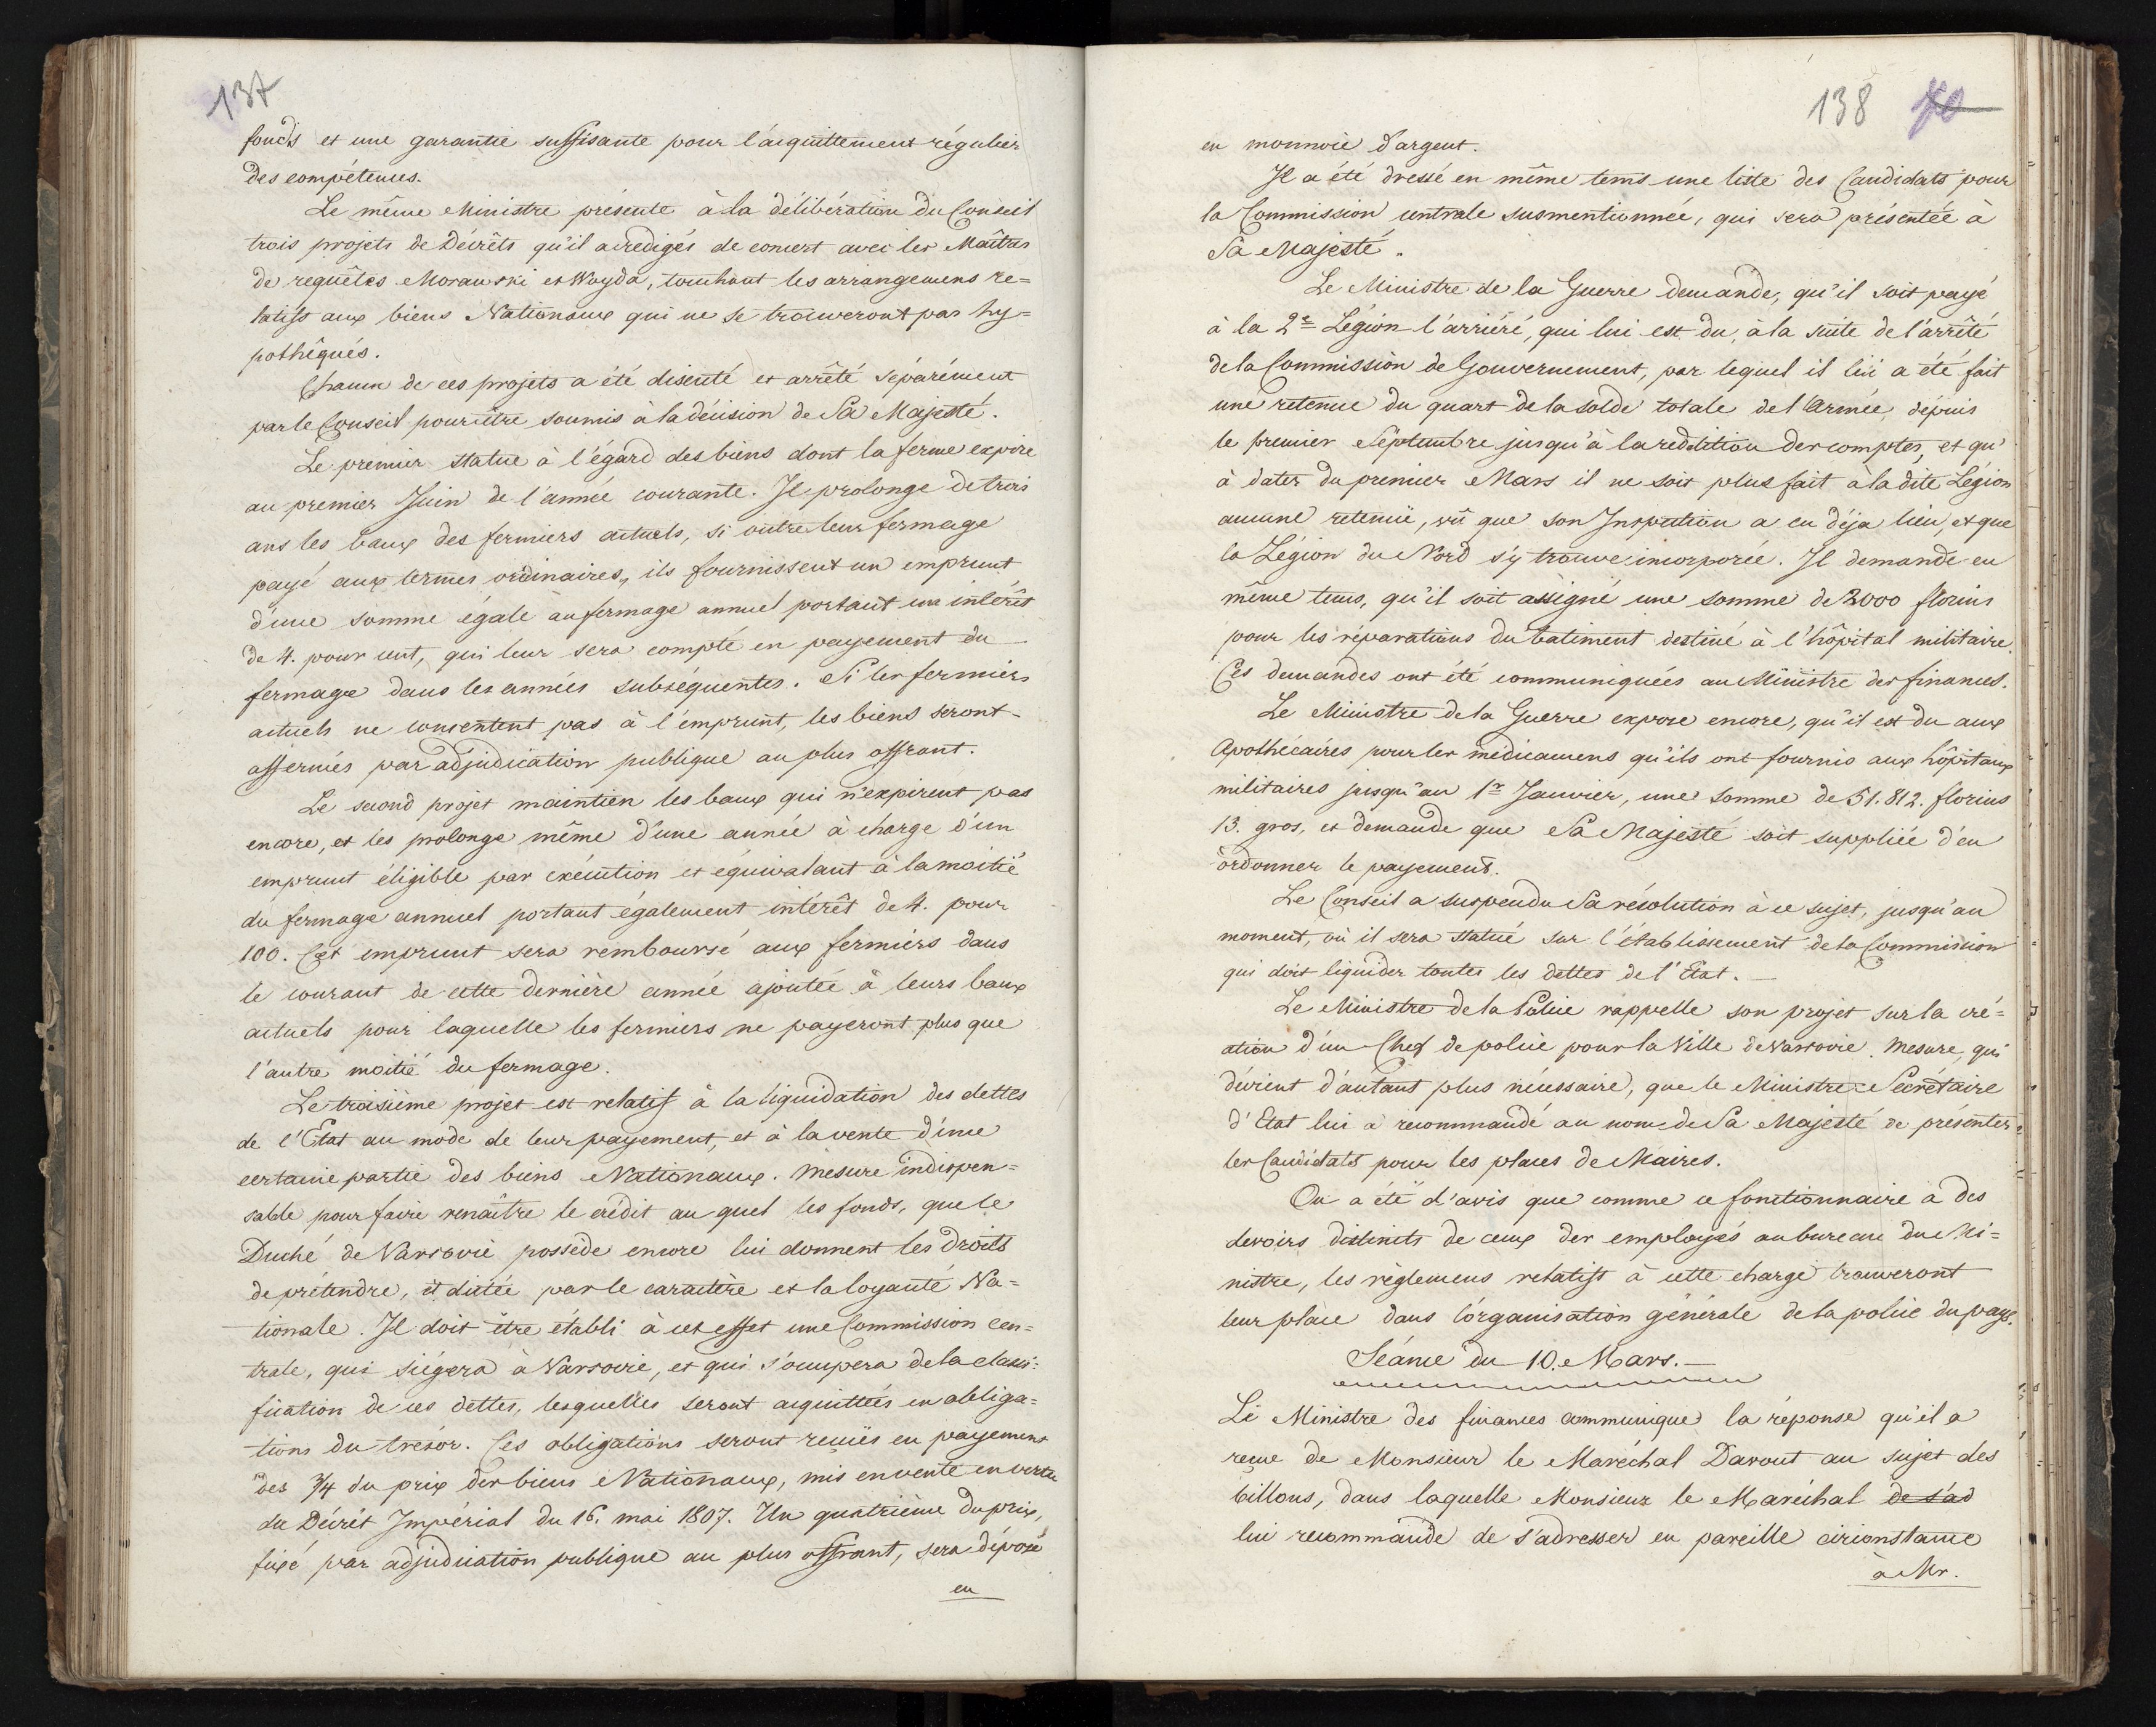 137
fonds et une garantie suffisante pour l'acquittement régulier
des compétences.
Le même Ministre présente à la délibération du Conseil
trois projets de Décrêts qu'il a redigés de concert avec les Maîtres
de requêtes Morawski et Woyda, touchant les arrangemens re=
latifs aux biens Nationaux qui ne se trouveront pas hy=
pothêqués.
Chacun de ces projets a été discuté et arrêté séparément
par le Conseil pour être soumis à la décision de Sa Majesté.
Le premier statue à l'égard des biens dont la ferme expire
au premier Juin de l'année courante. Il prolonge de trois
ans les baux des fermiers actuels, si outre leur fermage
payé aux termes ordinaires, ils fournissent un emprunt
d'une somme égale au fermage annuel portant un intérêt
de 4. pour cent, qui leur sera compté en payement du
fermage dans les années subséquentes. Si les fermiers
actuels ne consentent pas à l'emprunt, les biens seront
affermés par adjudication publique au plus offrant.
Le second projet maintien les baux qui n'expirent pas
encore, et les prolonge même d'une année à charge d'un
emprunt éligible par exécution et équivalant à la moitié
du fermage annuel portant également intérêt de 4. pour
100. Cet emprunt sera remboursé aux fermiers dans
le courant de cette dernière année ajoutée à leurs baux
actuels pour laquelle les fermiers ne payeront plus que
l'autre moitié du fermage.
Le troisième projet est relatif à la liquidation des dettes
de l'Etat au mode de leur payement, et à la vente d'une
certaine partie des biens Nationaux. Mesure indispen=
sable pour faire renaître le crédit au quel les fonds, que le
Duché de Varsovie possède encore lui donnent les droits
de prétendre, et dictée par le caractère et la loyauté Na=
tionale. Il doit être établi à cet effet une Commission cen=
trale, qui siégera à Varsovie, et qui s'occupera de la classi=
fication de ces dettes, lesquelles seront acquittées en obliga=
tions du trésor. Ces obligations seront reçües en payement
des 3/4 du prix des biens Nationaux, mis en vente en vertu
du Décrêt Impérial du 16. mai 1807. Un quatrième du prix,
fixé par adjudication publique au plus offrant, sera déposé
en
138 70
en monnoie d'argent.
Il a été dressé en même tems une liste des Candidats pour
la Commission centrale susmentionnée, qui sera présentée à
Sa Majesté.
Le Ministre de la Guerre demande, qu'il soit payé
à la 2e Légion l'arriéré, qui lui est du, à la suite de l'arrêté
de la Commission de Gouvernement, par lequel il lui a été fait
une retenue du quart de la solde totale de l'Armée, dépuis
le premier Septembre jusqu'à la reddition des comptes, et qu'
à dater du premier Mars il ne soit plus fait à la dite Légion
aucune retenüe, vû que son Inspection a eu déja lieu, et que
la Légion du Nord s'y trouve incorporée. Il demande en
même tems, qu'il soit assigné une somme de 2000 florins
pour les réparations du batiment destiné à l'hôpital militaire.
Ces demandes ont été communiquées au Ministre des finances.
Le Ministre de la Guerre expose encore, qu'il est du aux
Apothécaires pour les médicamens qu'ils ont fournis aux hôpitaux
militaires jusqu'au 1r Janvier, une somme de 51.812. florins
13. gros, et demande que Sa Majesté soit suppliée d'en
ordonner le payement.
Le Conseil a suspendu Sa résolution à ce sujet, jusqu'au
moment, où il sera statué sur l'établissement de la Commission
qui doit liquider toutes les dettes de l'Etat.
Le Ministre de la Police rappelle son projet sur la cré=
ation d'un Chef de police pour la Ville de Varsovie. Mesure, qui
dévient d'autant plus nécessaire, que le Ministre Secrétaire
d'Etat lui a recommandé au nom de Sa Majesté de présenter
les Candidats pour les places de Maires.
On a été d'avis que comme ce fonctionnaire a des
devoirs distincts de ceux des employés au bureau du Mi=
nistre, les règlemens relatifs à cette charge trouveront
leur place dans l'organisation générale de la police du pays.
Séance du 10. Mars.
Le Ministre des finances communique la réponse qu'il a
reçue de Monsieur le Maréchal Davout au sujet des
billons, dans laquelle Monsieur le Maréchal de s'ad
lui recommande de s'adresser en pareille circonstance
à Mr.